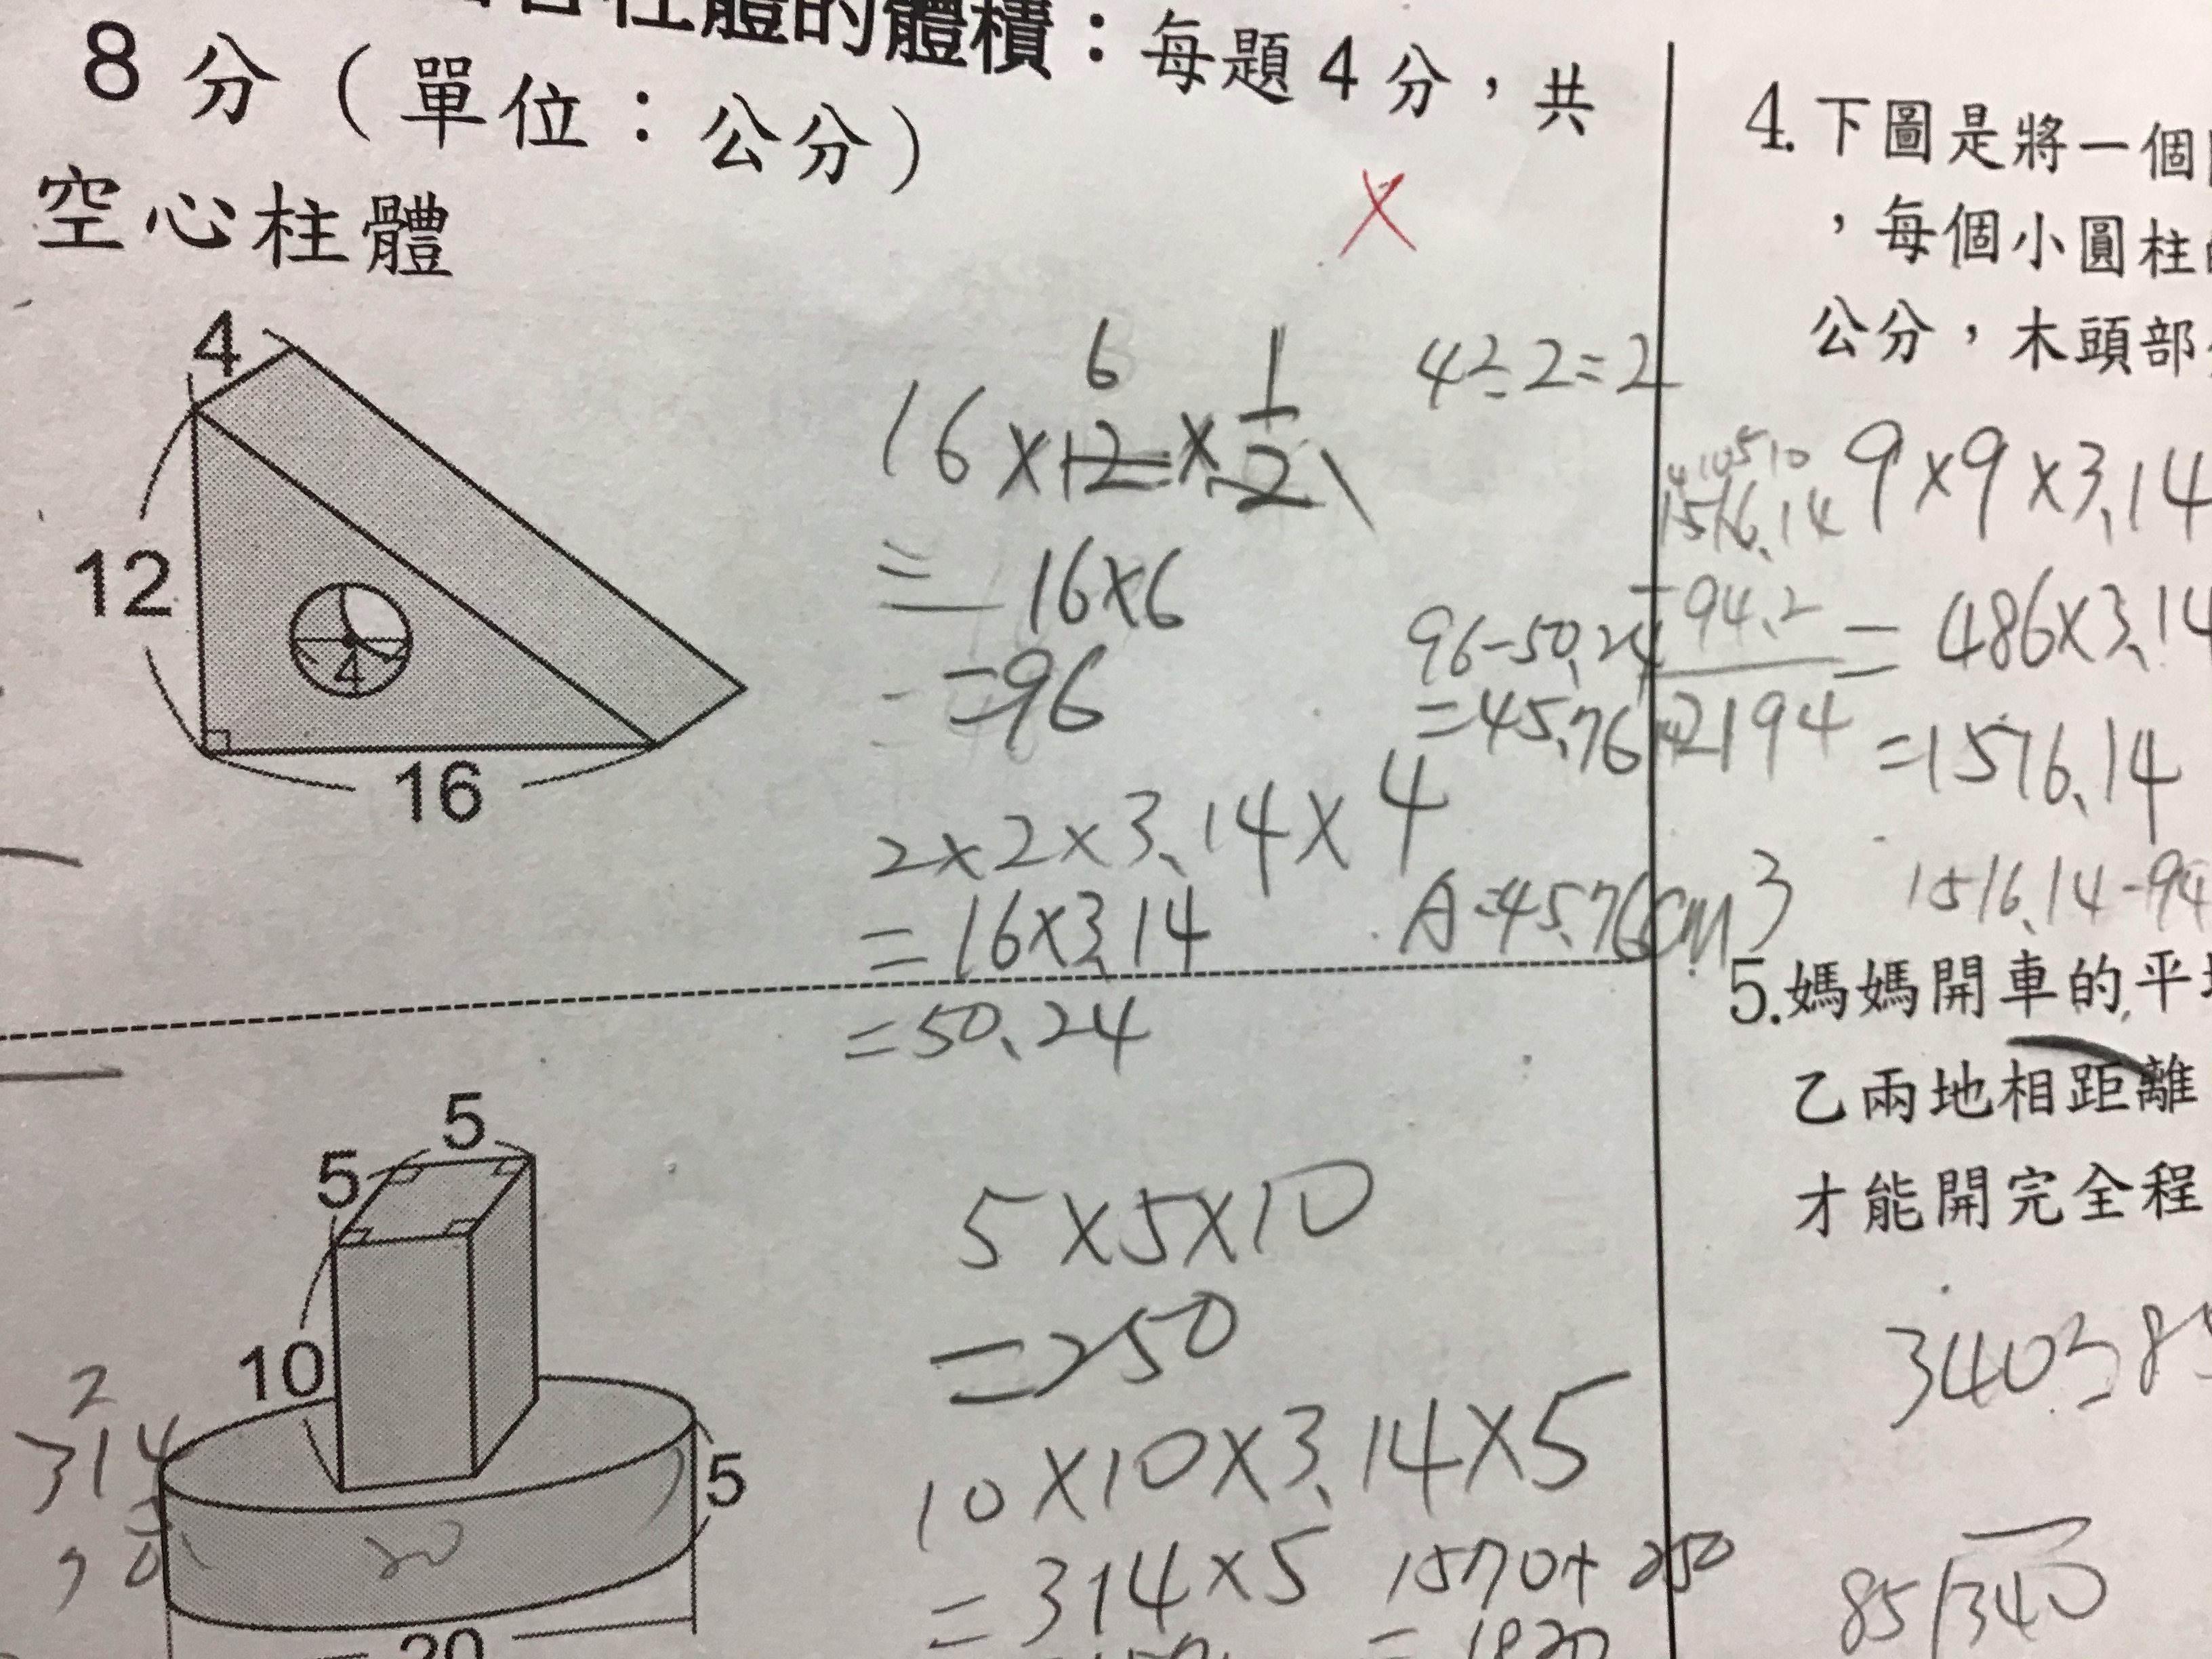 柱體的體積：每題4分，共
8分（單位：公分）
空心柱體
4
12
4
16
16×12×1/2
6
=16×6
=96
4÷2=2
96-50.24
=45.76
2×2×3.14×4
=16×3.14
=50.24
A:45.76cm³
5
5
10
5
20
20
2
314
5×5×10
=250
10×10×3.14×5
=314×5
1570+250
=1820
4.下圖是將一個
，每個小圓柱
公分，木頭部
9×9×3.14
=486×3.14
=1576.14
1576.14
-94.2
2194
1516.14-94
5.媽媽開車的平
乙兩地相距離
才能開完全程
340÷85
85 340